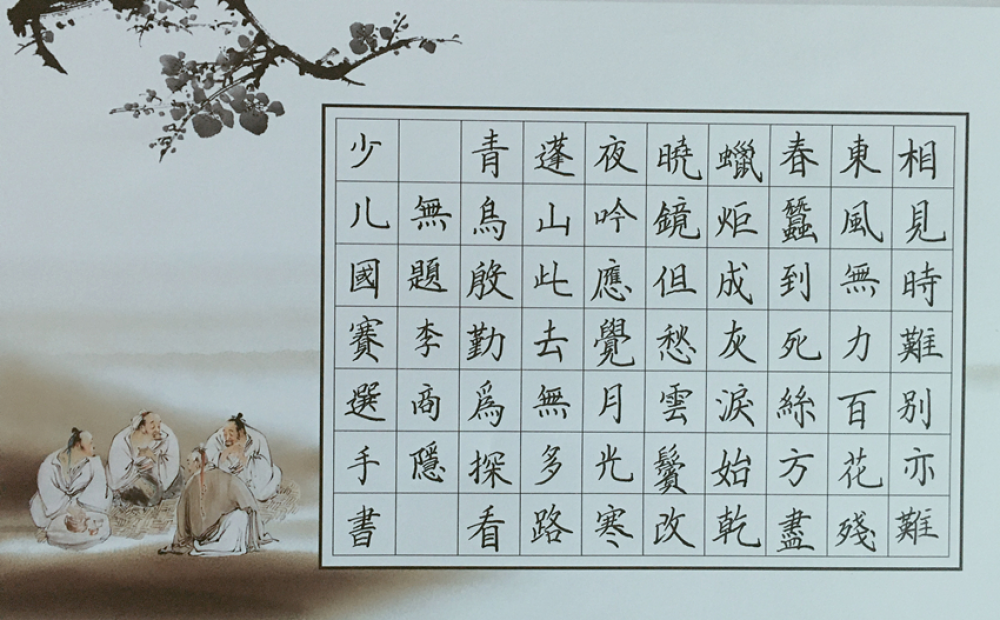 相見時難别亦難
東風無力百花殘
春蠶到死絲方盡
蠟炬成灰淚始乾
曉鏡但愁雲鬢改
夜吟應覺月光寒
蓬山此去無多路
青鳥殷勤爲探看
無題李商隱
少儿國賽選手書